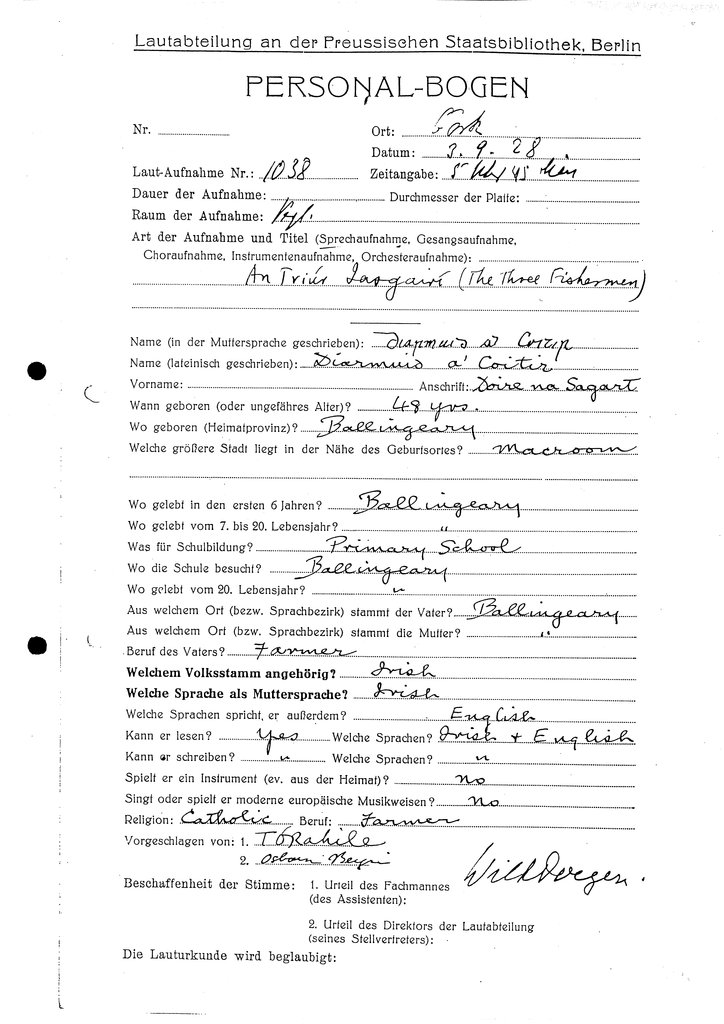 Lautabteilung an der Preussischen Staatsbibliothek, Berlin
PERSONAL-BOGEN
Nr. Ort: Cork
Datum: 3. 9. 28.
Laut-Aufnahme Nr.: 1038 Zeitangabe: 5 Uhr 45 Min
Dauer der Aufnahme: Durchmesser der Platte:
Raum der Aufnahme:
Art der Aufnahme und Titel (Sprechaufnahme, Gesangsaufnahme,
Choraufnahme, Instrumentenaufnahme, Orchesteraufnahme):
An Triúr Iasgairí (The Three Fishermen)
Name (in der Muttersprache geschrieben): Diarmuid a' Coitir
Name (lateinisch geschrieben): Diarmuid a' Coitir
Vorname: Anschrift: Doire na Sagart
Wann geboren (oder ungefähres Alter)? 48 yrs.
Wo geboren (Heimatprovinz)? Ballingeary
Welche größere Stadt liegt in der Nähe des Geburtsortes? Macroom
Wo gelebt in den ersten 6 Jahren? Ballingeary
Wo gelebt vom 7. bis 20. Lebensjahr? "
Was für Schulbildung? Primary School
Wo die Schule besucht? Ballingeary
Wo gelebt vom 20. Lebensjahr? "
Aus welchem Ort (bezw. Sprachbezirk) stammt der Vater? Ballingeary
Aus welchem Ort (bzw. Sprachbezirk) stammt die Mutter? "
Beruf des Vaters? Farmer
Welchem Volksstamm angehörig? Irish
Welche Sprache als Muttersprache? Irish
Welche Sprachen spricht er außerdem? English
Kann er lesen? Yes Welche Sprachen? Irish + English
Kann er schreiben? " Welche Sprachen? "
Spielt er ein Instrument (ev. aus der Heimat)? No
Singt oder spielt er moderne europäische Musikweisen? No
Religion: Catholic Beruf: Farmer
Vorgeschlagen von: 1. T Ó Rahile
2. Osborn Bergin
Beschaffenheit der Stimme: 1. Urteil des Fachmannes Wilh Doegen.
(des Assistenten):
2. Urteil des Direktors der Lautabteilung
(seines Stellvertreters):
Die Lauturkunde wird beglaubigt: